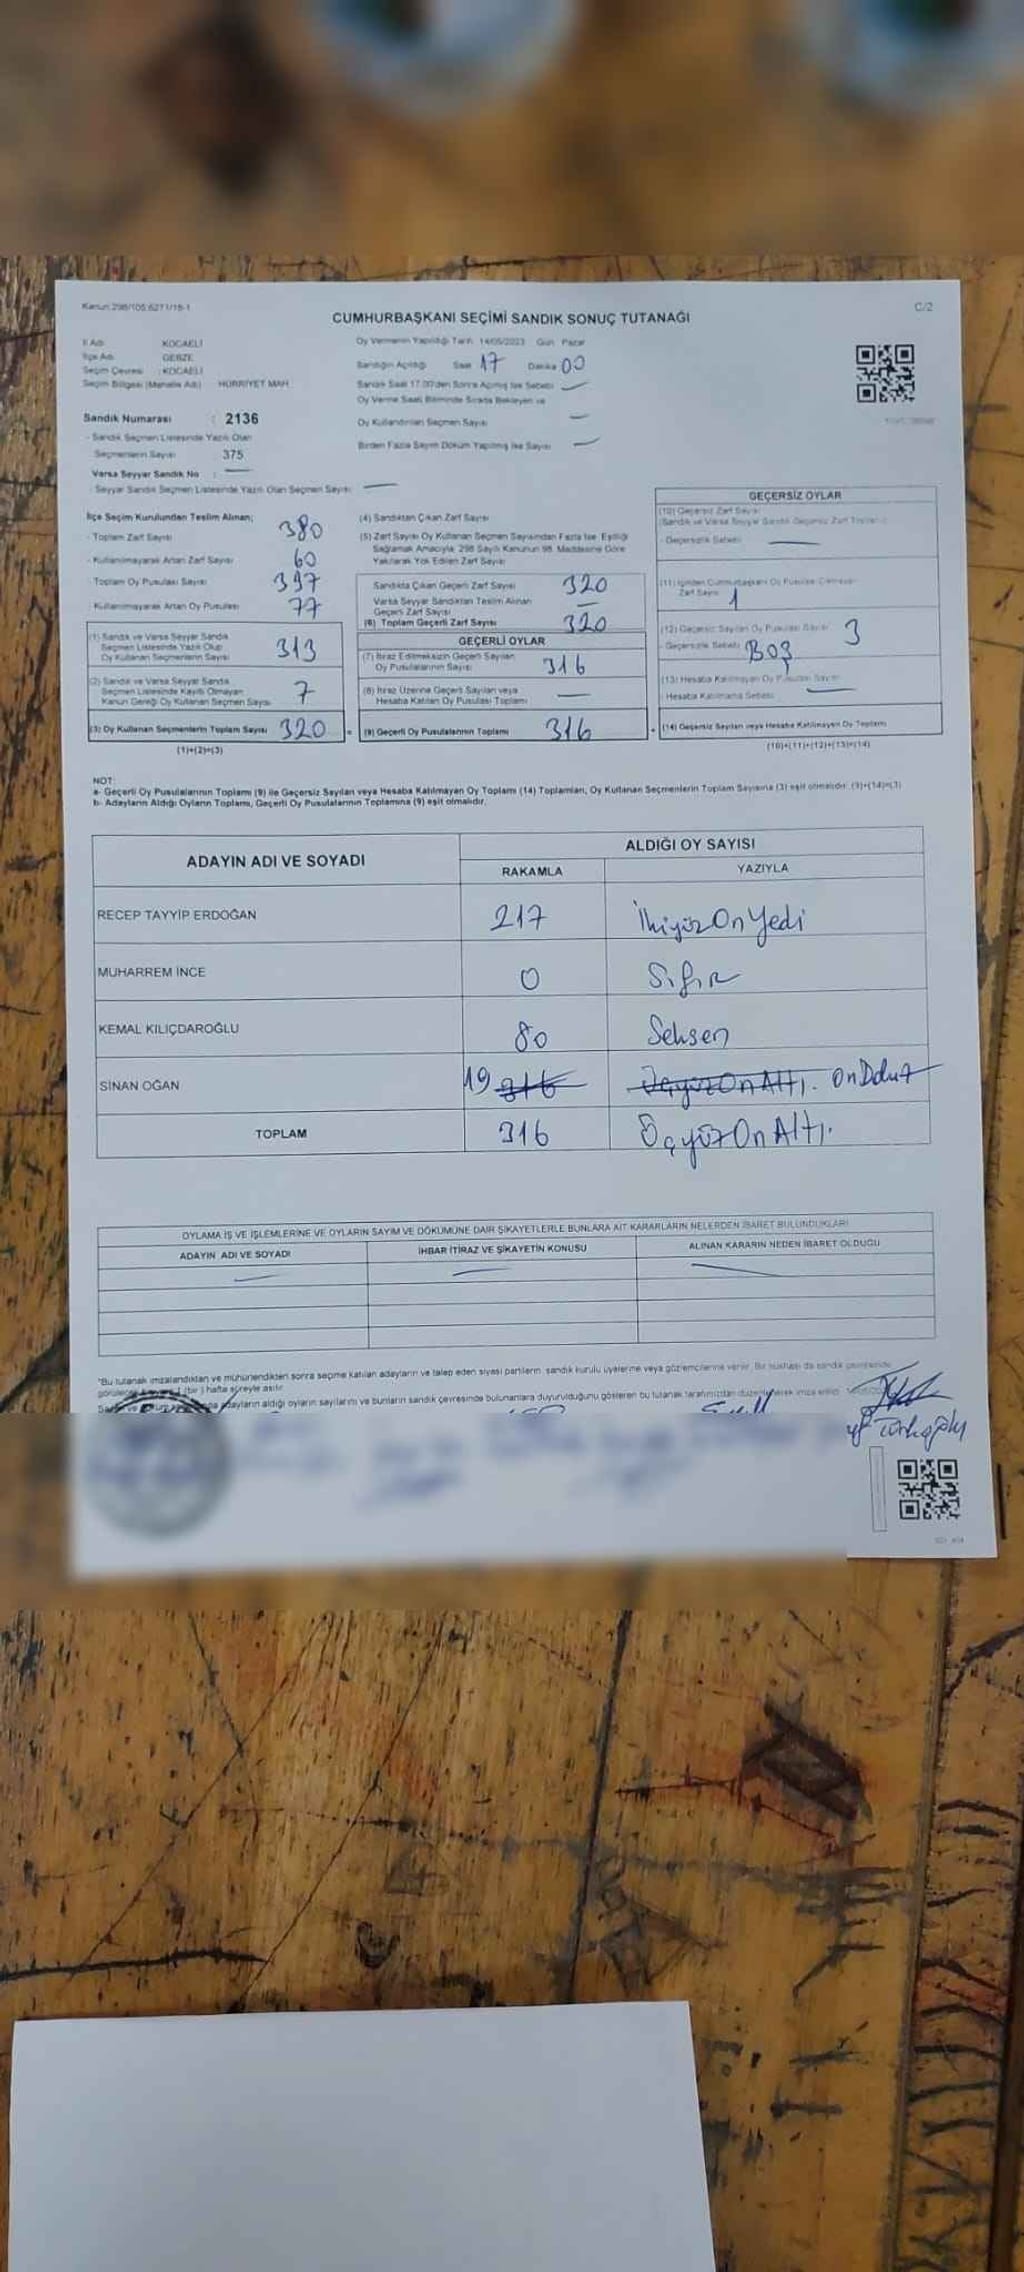 Kanun 298/105 6271/18-1
C/2
CUMHURBAŞKANI SEÇİMİ SANDIK SONUÇ TUTANAĞI
İl Adı KOCAELİ
İlçe Adı GEBZE
Seçim Çevresi : KOCAELİ
Seçim Bölgesi (Mahalle Adı) HÜRRİYET MAH.
Oy Vermenin Yapıldığı Tarih 14/05/2023 Gün Pazar
Sandığın Açıldığı Saat 17 Dakika 00
Sandık Saat 17.00'den Sonra Açılmış İse Sebebi —
Oy Verme Saati Bitiminde Sırada Bekleyen ve
Oy Kullandırılan Seçmen Sayısı —
Birden Fazla Sayım Döküm Yapılmış İse Sayısı —
Sandık Numarası : 2136
- Sandık Seçmen Listesinde Yazılı Olan
Seçmenlerin Sayısı 375
Varsa Seyyar Sandık No : —
- Seyyar Sandık Seçmen Listesinde Yazılı Olan Seçmen Sayısı —
İlçe Seçim Kurulundan Teslim Alınan;
- Toplam Zarf Sayısı 380
- Kullanılmayarak Artan Zarf Sayısı 60
- Toplam Oy Pusulası Sayısı 397
- Kullanılmayarak Artan Oy Pusulası 77
(1) Sandık ve Varsa Seyyar Sandık
Seçmen Listesinde Yazılı Olup
Oy Kullanan Seçmenlerin Sayısı 313
(2) Sandık ve Varsa Seyyar Sandık
Seçmen Listesinde Kayıtlı Olmayan
Kanun Gereği Oy Kullanan Seçmen Sayısı 7
(3) Oy Kullanan Seçmenlerin Toplam Sayısı 320
(1)+(2)=(3)
(4) Sandıktan Çıkan Zarf Sayısı
(5) Zarf Sayısı Oy Kullanan Seçmen Sayısından Fazla İse, Eşitliği
Sağlamak Amacıyla, 298 Sayılı Kanunun 98. Maddesine Göre
Yakılarak Yok Edilen Zarf Sayısı
Sandıkta Çıkan Geçerli Zarf Sayısı 320
Varsa Seyyar Sandıktan Teslim Alınan
Geçerli Zarf Sayısı —
(6) Toplam Geçerli Zarf Sayısı 320
GEÇERLİ OYLAR
(7) İtiraz Edilmeksizin Geçerli Sayılan
Oy Pusulalarının Sayısı 316
(8) İtiraz Üzerine Geçerli Sayılan veya
Hesaba Katılan Oy Pusulası Toplamı —
(9) Geçerli Oy Pusulalarının Toplamı 316
GEÇERSİZ OYLAR
(10) Geçersiz Zarf Sayısı
- Geçersizlik Sebebi —
Zarf Sayısı 1
(12) Geçersiz Sayılan Oy Pusulası Sayısı 3
- Geçersizlik Sebebi BOŞ
(13) Hesaba Katılmayan Oy Pusulası Sayısı —
- Hesaba Katılmama Sebebi
(14) Geçersiz Sayılan veya Hesaba Katılmayan Oy Toplamı
(10)+(11)+(12)+(13)=(14)
NOT:
a- Geçerli Oy Pusulalarının Toplamı (9) ile Geçersiz Sayılan veya Hesaba Katılmayan Oy Toplamı (14) Toplamları, Oy Kullanan Seçmenlerin Toplam Sayısına (3) eşit olmalıdır. (9)+(14)=(3)
b- Adayların Aldığı Oyların Toplamı, Geçerli Oy Pusulalarının Toplamına (9) eşit olmalıdır.
ADAYIN ADI VE SOYADI
ALDIĞI OY SAYISI
RAKAMLA YAZIYLA
RECEP TAYYİP ERDOĞAN 217 İkiyüzOnYedi
MUHARREM İNCE 0 Sıfır
KEMAL KILIÇDAROĞLU 80 Seksen
SİNAN OĞAN 19 316 ÜçyüzOnAltı. OnDokuz
TOPLAM 316 ÜçyüzOnAltı.
OYLAMA İŞ VE İŞLEMLERİNE VE OYLARIN SAYIM VE DÖKÜMÜNE DAİR ŞİKAYETLERLE BUNLARA AİT KARARLARIN NELERDEN İBARET BULUNDUKLARI
ADAYIN ADI VE SOYADI İHBAR İTİRAZ VE ŞİKAYETİN KONUSU ALINAN KARARIN NEDEN İBARET OLDUĞU
— — —
*Bu tutanak imzalandıktan ve mühürlendikten sonra seçime katılan adayların ve talep eden siyasi partilerin sandık kurulu üyelerine veya gözlemcilerine verilir. Bir nüshası da sandık çevresinde
(bir) hafta süreyle asılır.
adayların aldığı oyların sayılarını ve bunların sandık çevresinde bulunanlara duyurulduğunu gösteren bu tutanak tarafımızdan düzenlenerek imza edildi.